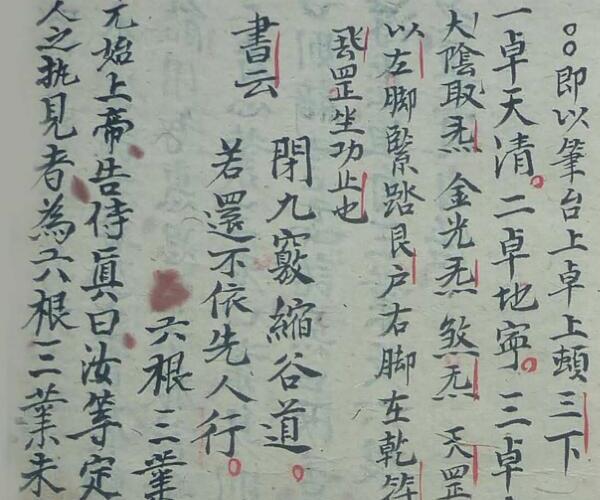 即以筆台上卓上頓三下
一卓天清。二卓地寜。三卓
大陰取炁金光炁煞炁天罡
以左脚緊踏艮户右脚在乾
罡坐功止也
書云
閉九竅縮谷道。
若還不依先人行。
六根三業
元始上帝告侍真曰汝等定
人之執見者為六根三業未